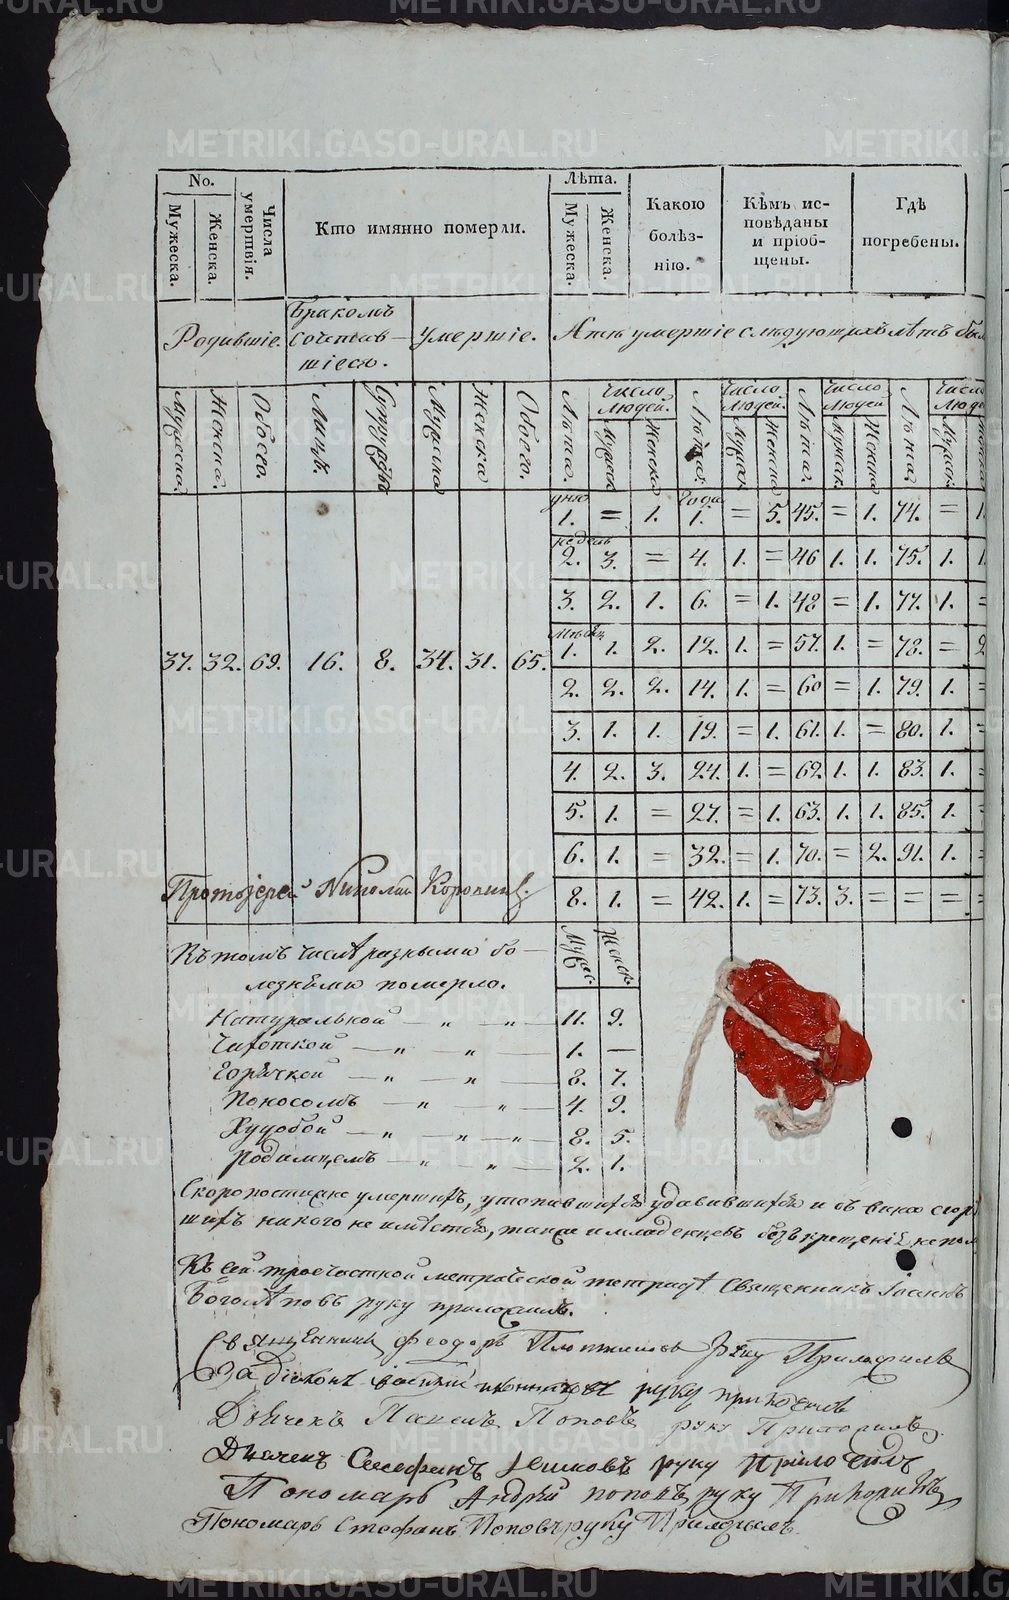 No.
Мужеска.
Женска.
Числа умертвія.
Кто имянно померли.
Лѣта.
Мужеска.
Женска.
Какою болѣз-
нію.
Кѣмъ ис-
повѣданы
и пріоб-
щены.
Гдѣ
погребены.
Родившіе.
Бракомъ
сочетав-
шіеся.
Умершіе.
А тѣ умершіе слѣдующихъ лѣтъ
Мужеска. Женска. Обоего. Лицъ. Супружествъ Мужеска Женска Обоего.
Лѣта. Число людей. Мужеск Женска Лѣта. Число людей. Мужеск Женска Лѣта. Число людей Мужеск. Женска Лѣта. Число Мужеск.
дня 1. = 1. года 1. = 5. 45. = 1. 74. = 1
недель 2. 3. = 4. 1. = 46 1. 1. 75. 1. 1
3. 2. 1. 6. = 1. 48 = 1. 77. 1. =
37. 32. 69. 16. 8. 34. 31. 65. 1. 1. 2. 12. 1. = 57. 1. = 78. = 2
2. 2. 2. 14. 1. = 60 = 1. 79. 1. =
3. 1. 1. 19. = 1. 61. 1. = 80. 1. =
4. 2. 3. 24. 1. = 62. 1. 1. 83. 1. =
5. 1. = 27. = 1. 63. 1. 1. 85. 1. =
6. 1. = 32. = 1. 70. = 2. 91. 1. =
8. 1. = 42. 1. = 73. 3. = = = =
Протоіерей Николай
Въ томъ числѣ разными бо-
лезньми померло.
Мужес. Женск.
Натуральной — „ — „ — 11. 9.
Чахоткой — „ — „ — 1. —
Горячкой — „ — „ — 8. 7.
Поносомъ — „ — „ — 4. 9.
Худобой — „ — „ — „ — 8. 5.
Родимцемъ — „ — „ — 2. 1.
Скоропостижно умершихъ, утопившихся удавившихся и
никого не имѣется, также и младенцевъ безъ крещенія
Къ сей троечастной метрической тетрадѣ Священникъ Іоаннъ
Боголѣповъ руку приложилъ.
Священникъ Феодоръ Плотниковъ Руку Приложилъ
Діаконъ Василій руку приложилъ
Дьячекъ Павелъ Поповъ руку Приложилъ.
Дьячекъ руку приложилъ
Пономарь Андрей Поповъ руку Приложилъ
Пономарь Стефанъ Поповъ руку Приложилъ.
METRIKI.GASO-URAL.RU